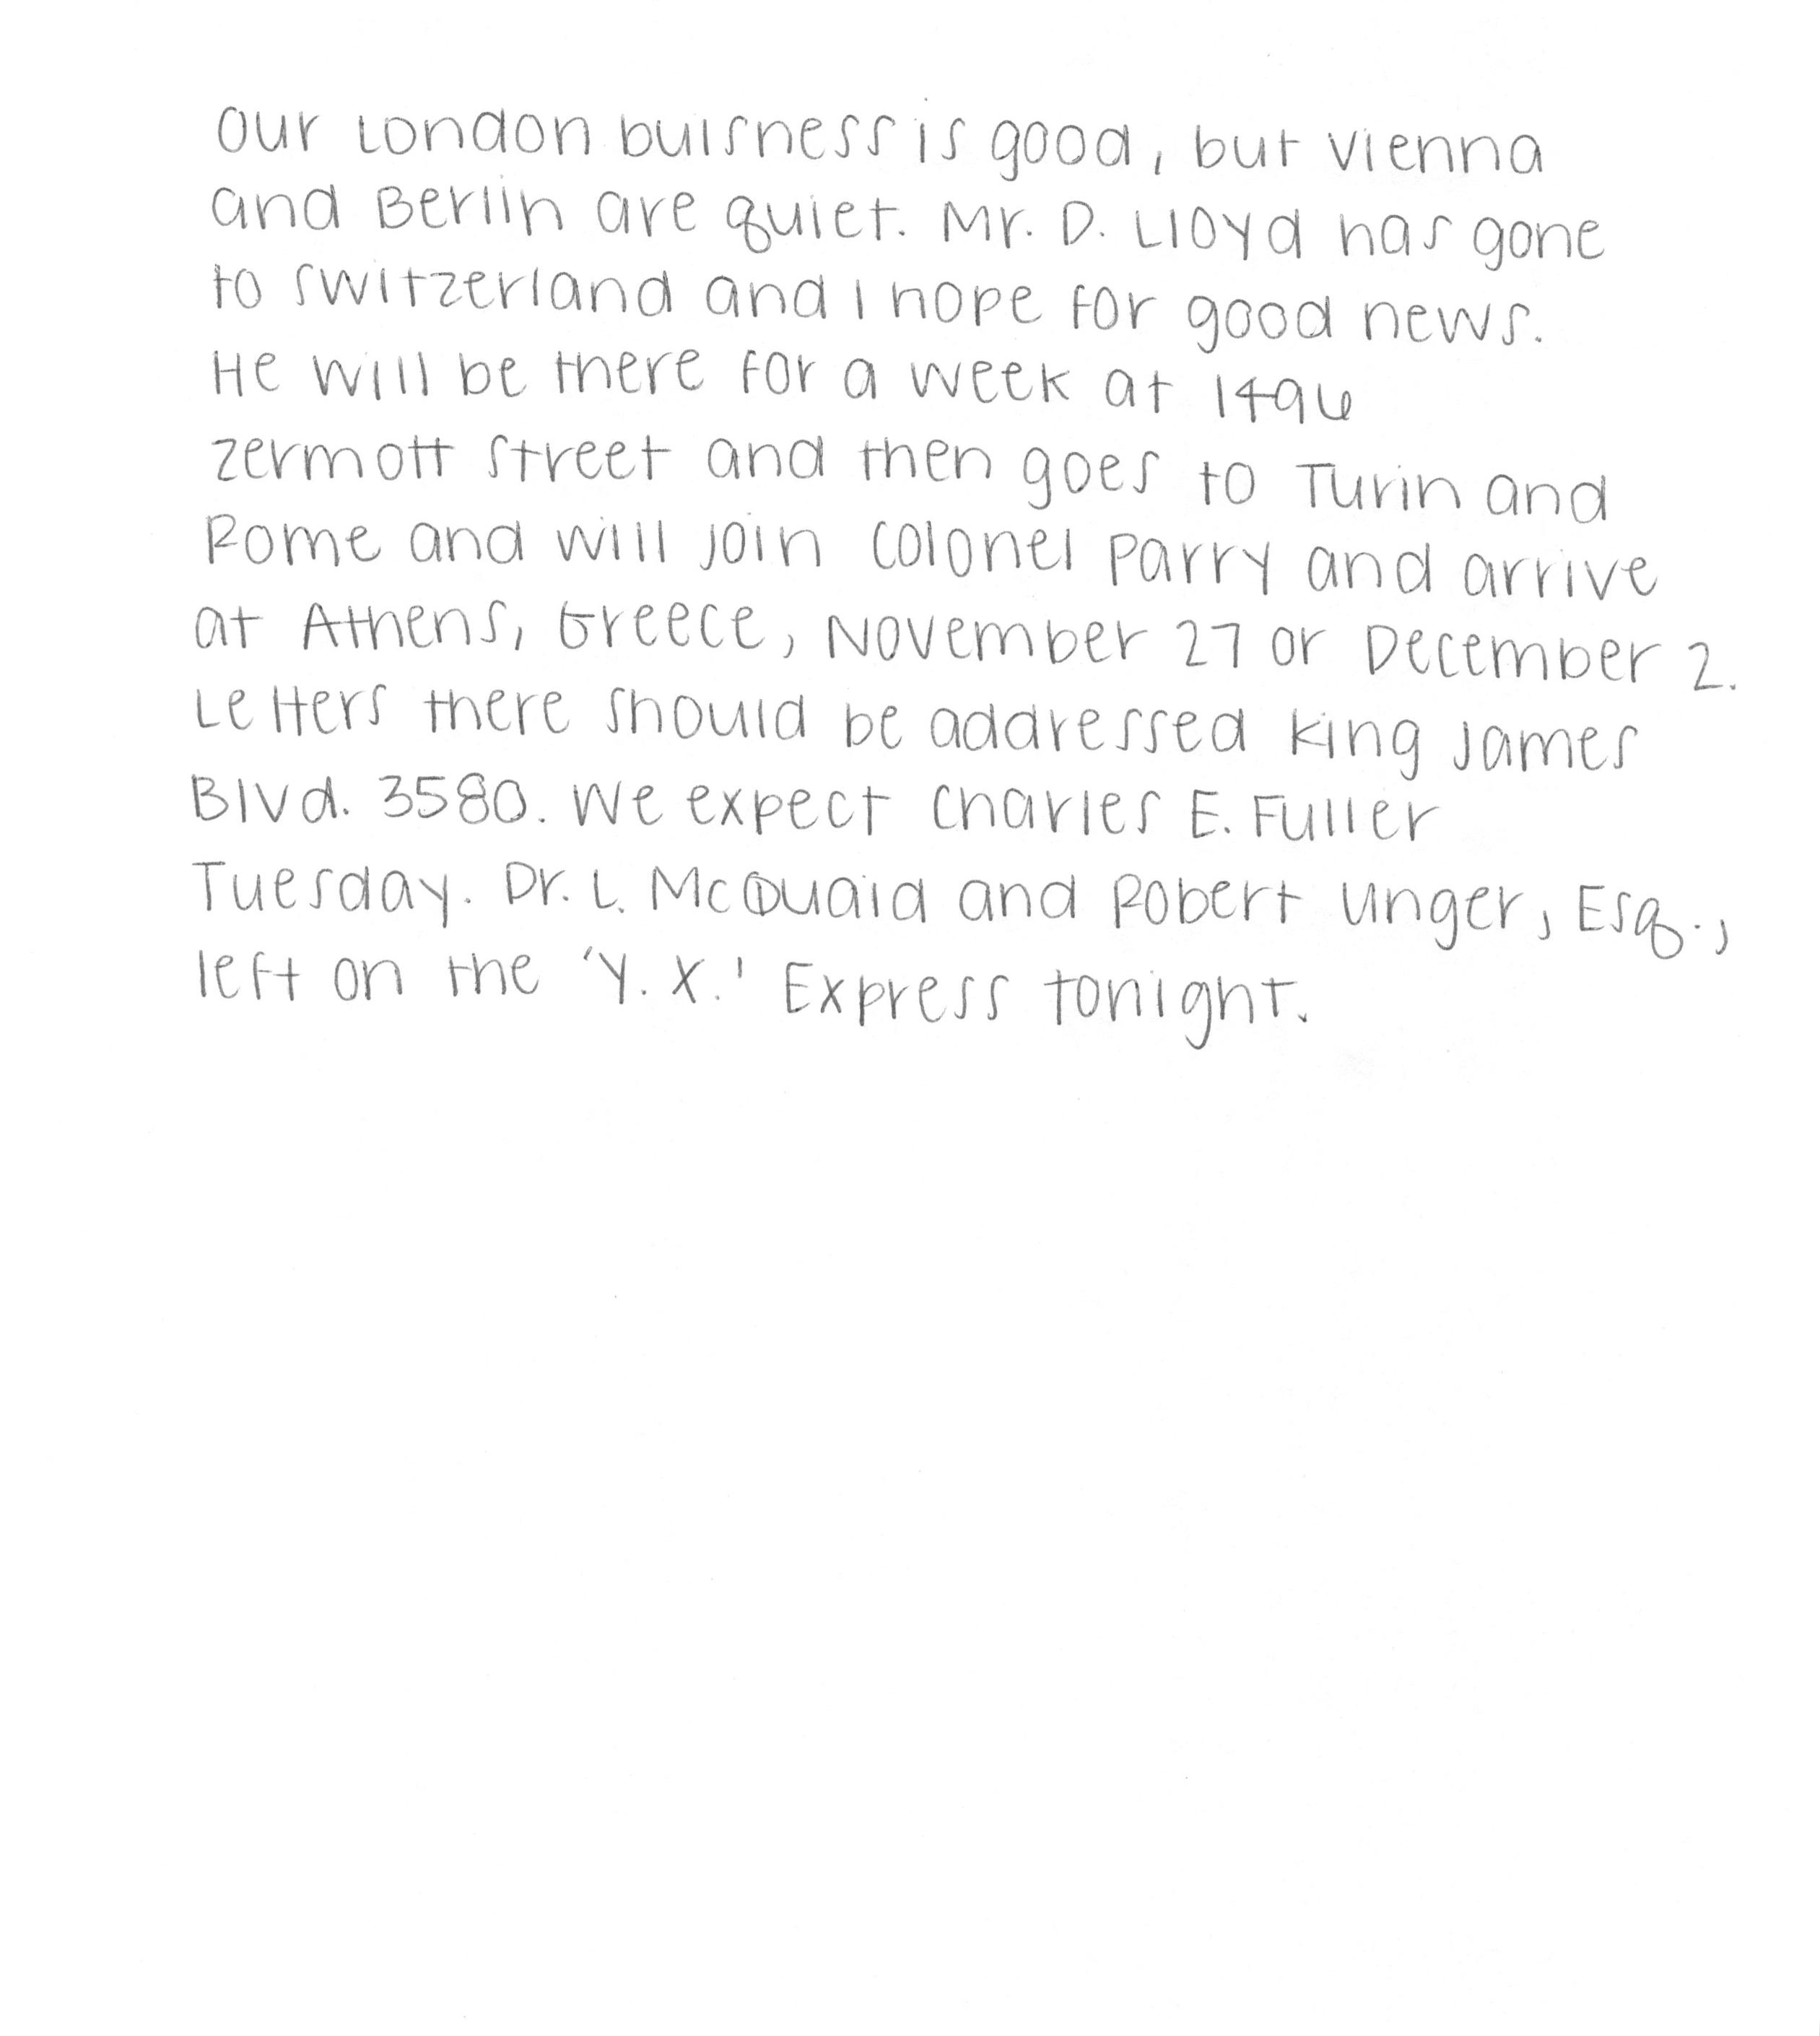 Our London buisness is good, but Vienna
and Berlin are quiet. Mr. D. Lloyd has gone
to Switzerland and I hope for good news.
He will be there for a week at 1496
Zermott Street and then goes to Turin and
Rome and will join Colonel Parry and arrive
at Athens, Greece, November 27 or December 2.
Letters there should be addressed King James
Blvd. 3580. We expect Charles E. Fuller
Tuesday. Dr. L. McQuaid and Robert Unger, Esq.,
left on the 'Y. X.' Express tonight.